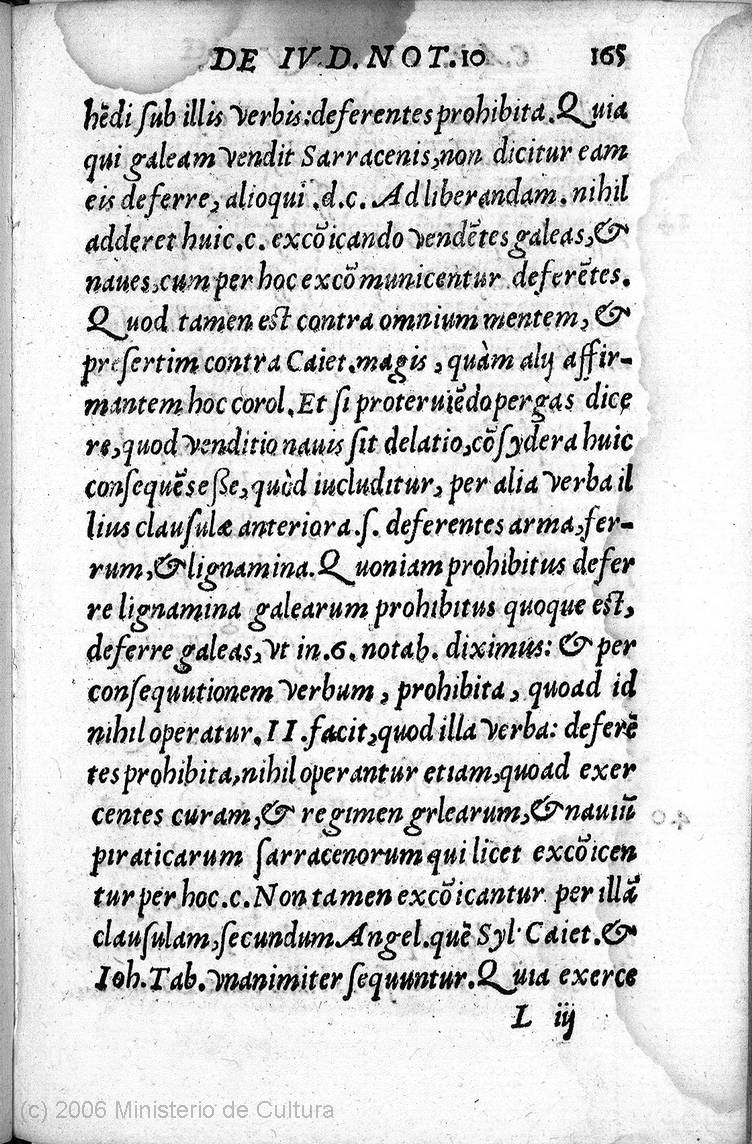 DE IV D. NOT. 10 165
hẽdi ſub illis verbis: deferentes prohibita. Quia
qui galeam vendit Sarracenis, non dicitur eam
eis deferre, alioqui .d.c. Ad liberandam. nihil
adderet huic .c. excõicando vendẽtes galeas, &
naues, cum per hoc excõmunicentur deferẽtes.
Quod tamen est contra omnium mentem, &
preſertim contra Caiet. magis, quàm alij affir-
mantem hoc corol. Et ſi proteruiẽdo pergas dice
re, quod venditio nauis ſit delatio, cõſydera huic
conſequẽs eſſe, quòd iucluditur, per alia verba il
lius clauſulæ anteriora .ſ. deferentes arma, fer-
rum, & lignamina. Quoniam prohibitus defer
re lignamina galearum prohibitus quoque est,
deferre galeas, vt in .6. notab. diximus: & per
conſequutionem verbum, prohibita, quoad id
nihil operatur. II. facit, quod illa verba: deferẽ
tes prohibita, nihil operantur etiam, quoad exer
centes curam, & regimen grlearum, & nauiũ
piraticarum ſarracenorum qui licet excõicen
tur per hoc .c. Non tamen excõicantur per illã
clauſulam, ſecundum Angel. quẽ Syl. Caiet. &
Ioh. Tab. vnanimiter ſequuntur. Quia exerce
L iij
(c) 2006 Ministerio de Cultura